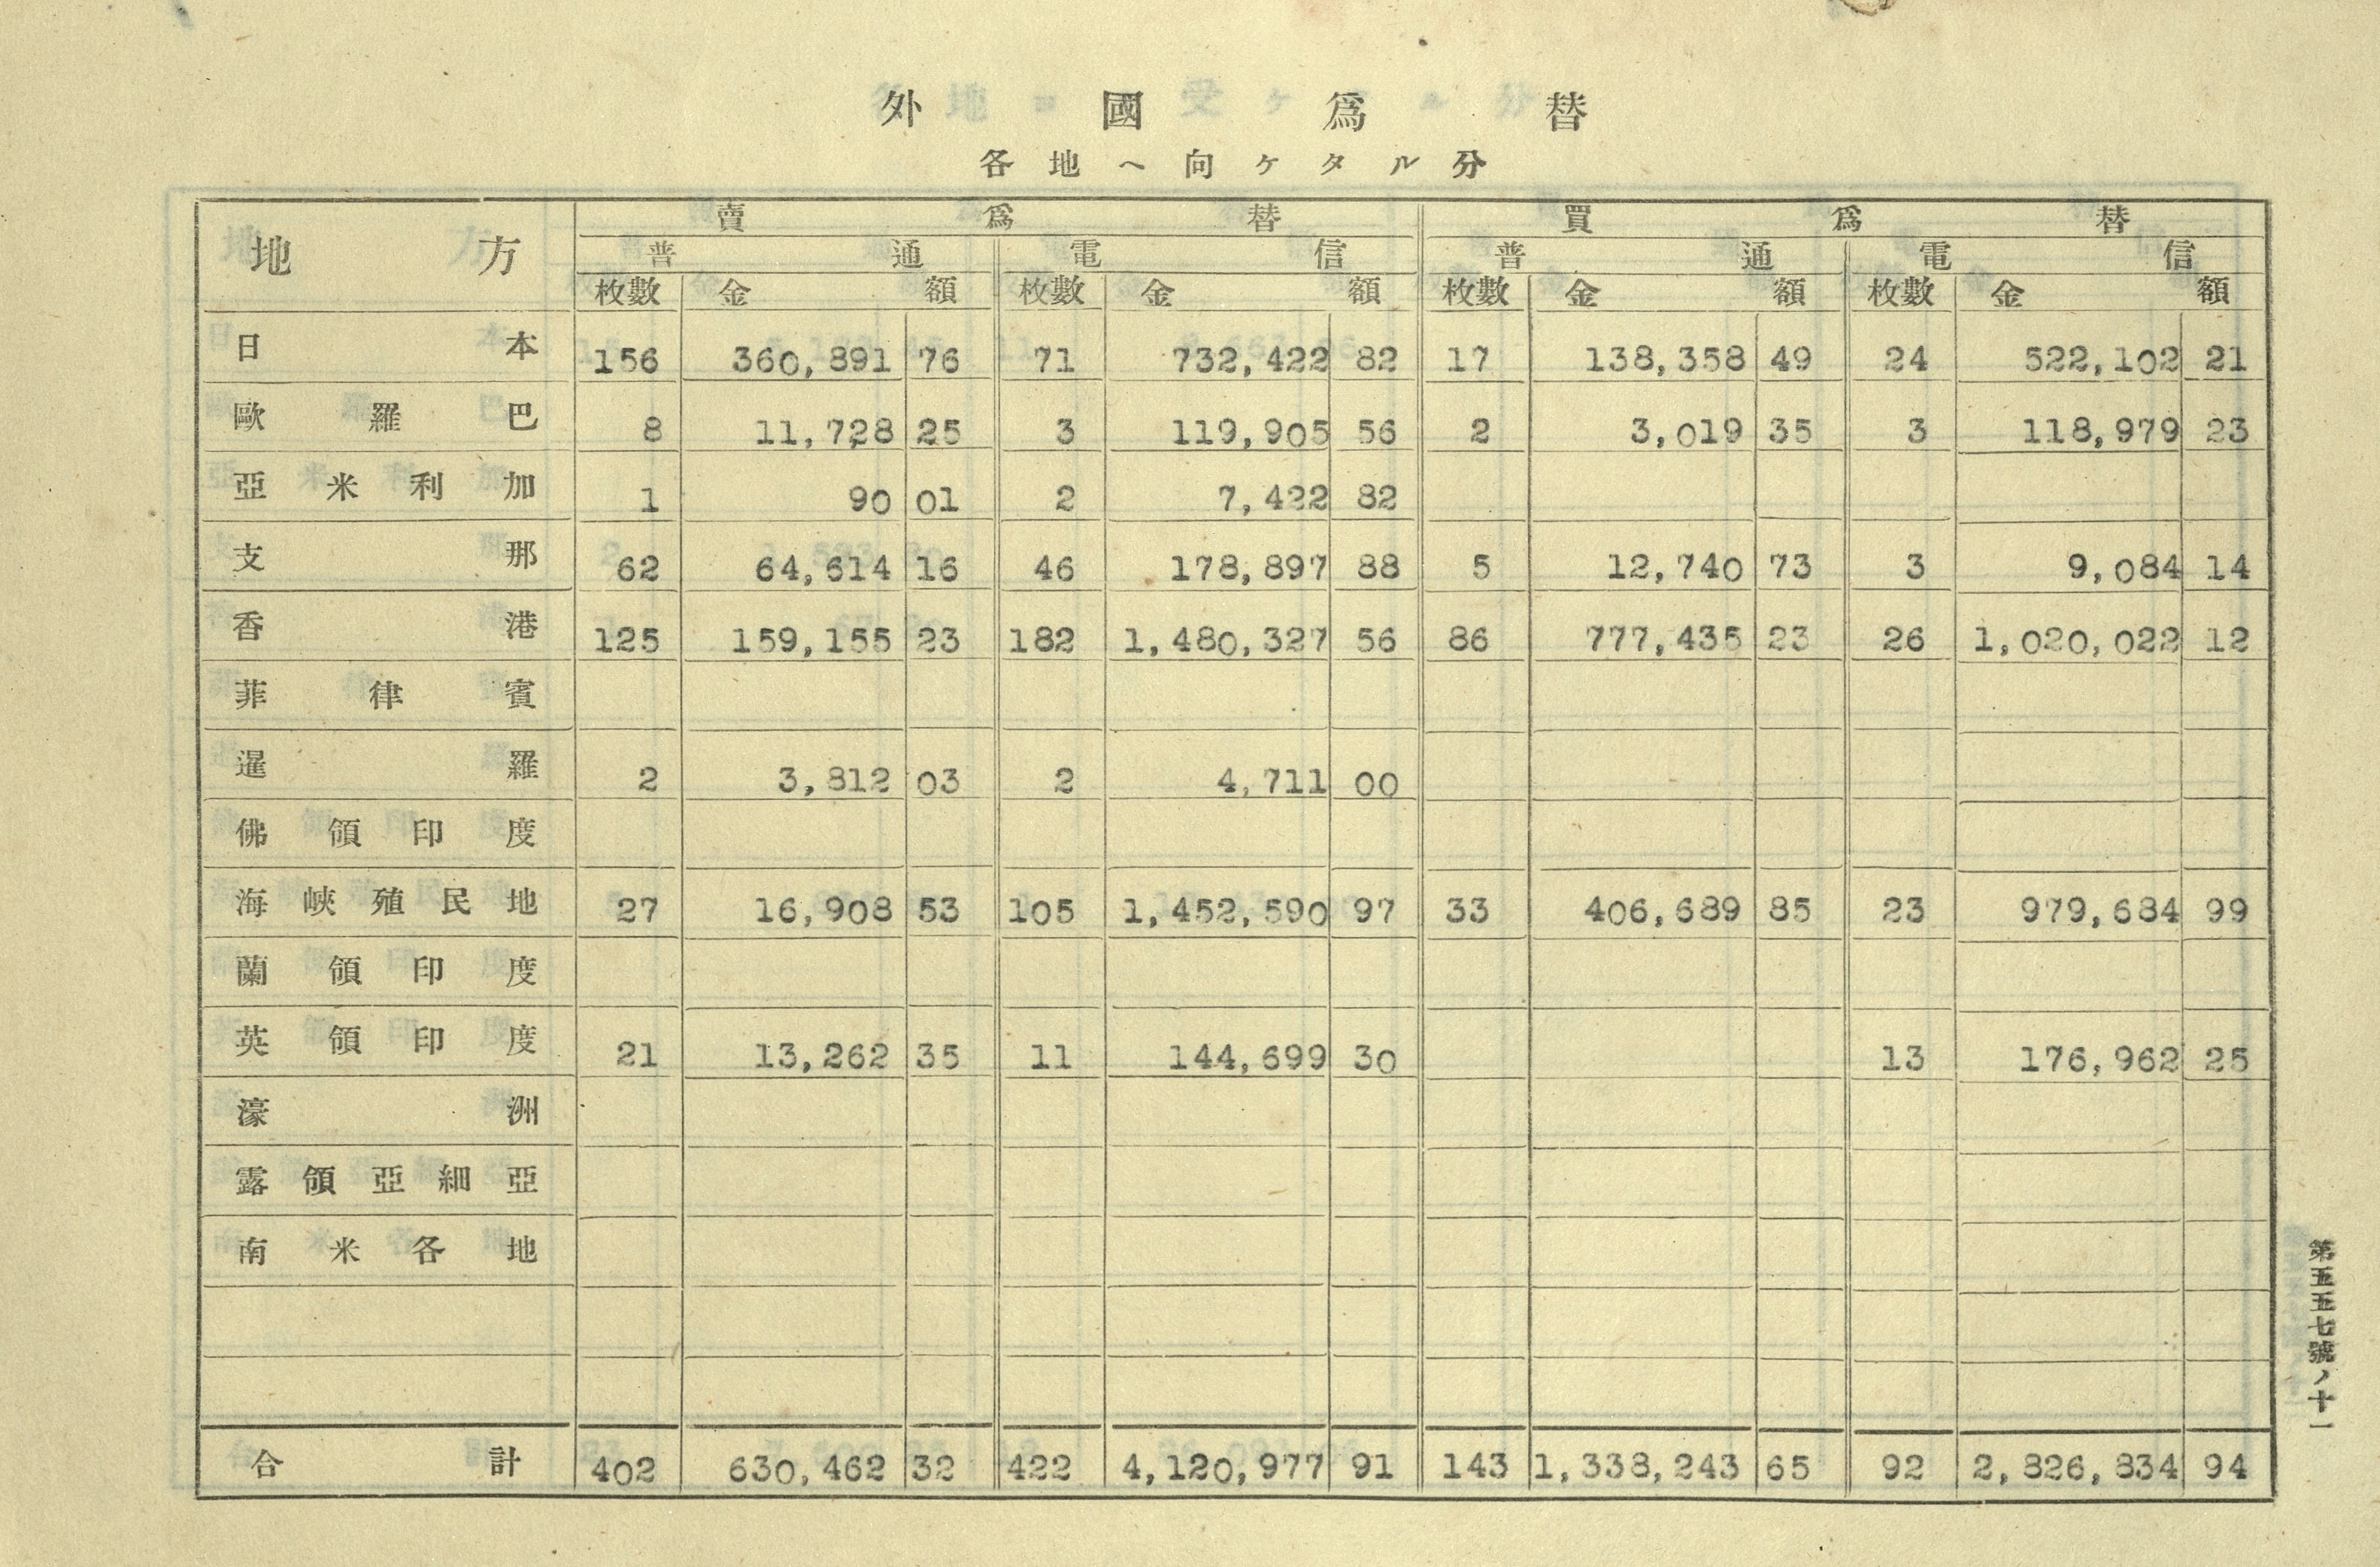 外國爲替
各地ヘ向ケタル分
地方 賣爲替 買爲替
普通 電信 普通 電信
枚數 金額 枚數 金額 枚數 金額 枚數 金額
日本 156 360,891 76 71 732,422 82 17 138,358 49 24 522,102 21
歐羅巴 8 11,728 25 3 119,905 56 2 3,019 35 3 118,979 23
亞米利加 1 90 01 2 7,422 82
支那 62 64,614 16 46 178,897 88 5 12,740 73 3 9,084 14
香港 125 159,155 23 182 1,480,327 56 86 777,435 23 26 1,020,022 12
菲律賓
暹羅 2 3,812 03 2 4,711 00
佛領印度
海峽殖民地 27 16,908 53 105 1,452,590 97 33 406,689 85 23 979,684 99
蘭領印度
英領印度 21 13,262 35 11 144,699 30 13 176,962 25
濠洲
露領亞細亞
南米各地
合計 402 630,462 32 422 4,120,977 91 143 1,338,243 65 92 2,826,834 94
第五五七號ノ十一